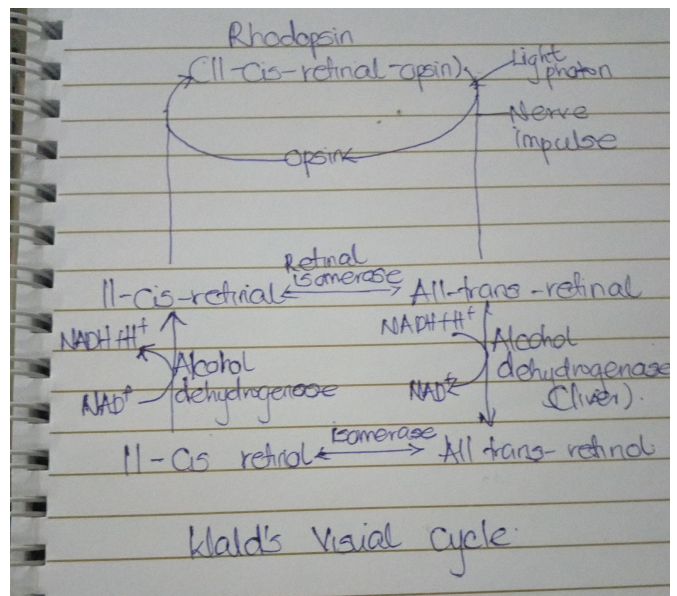 Rhodopsin
(11-cis-retinal-opsin)
Light
photon
Nerve
impulse
opsin
Retinal
isomerase
11-cis-retinal
All-trans-retinal
NADH+H+
Alcohol
dehydrogenase
NAD+
NADH+H+
Alcohol
dehydrogenase
(liver).
NAD+
isomerase
11-cis retinol
All trans-retinol
Wald's Visual cycle.